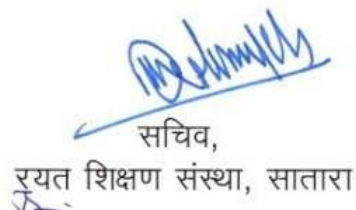 सचिव,
रयत शिक्षण संस्था, सातारा